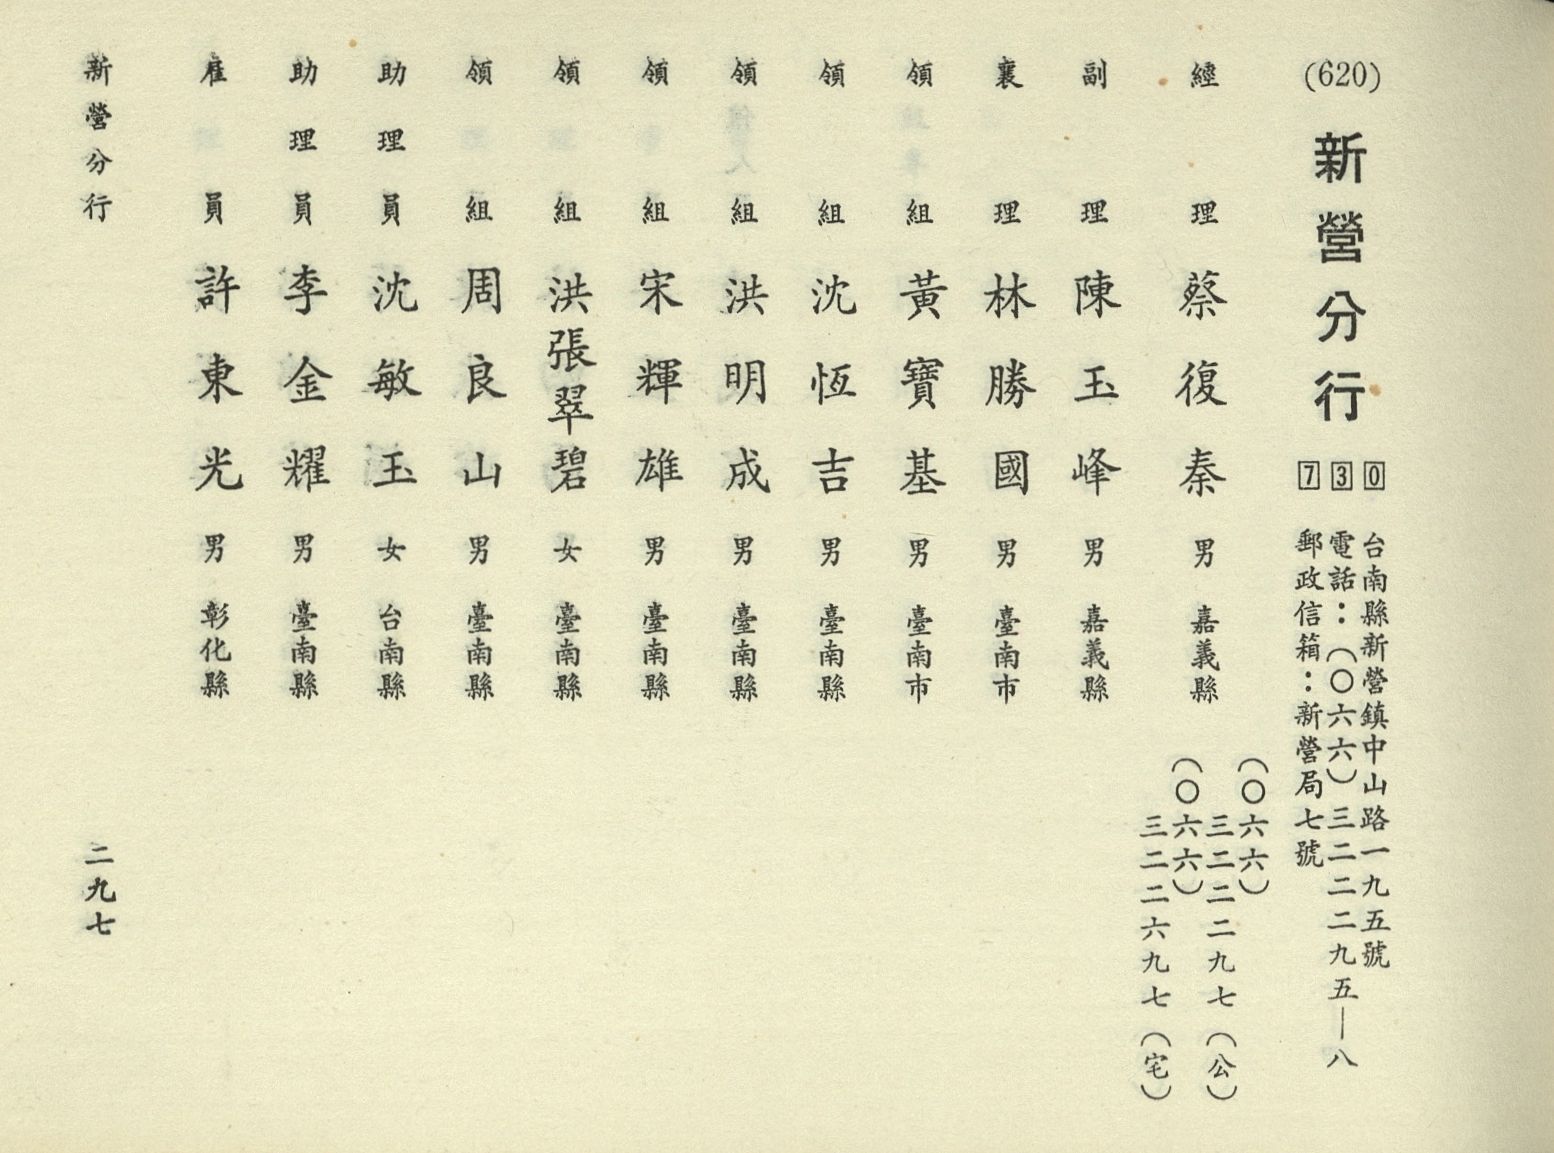 (620) 新營分行
730
台南縣新營鎮中山路一九五號
電話：(〇六六)三二二二九五—八
郵政信箱：新營局七號
經理 蔡復秦 男 嘉義縣
(〇六六)三二二二九七(公)
(〇六六)三二二六九七(宅)
副理 陳玉峰 男 嘉義縣
襄理 林勝國 男 臺南市
領組 黃寶基 男 臺南市
領組 沈恆吉 男 臺南縣
領組 洪明成 男 臺南縣
領組 宋輝雄 男 臺南縣
領組 洪張翠碧 女 臺南縣
領組 周良山 男 臺南縣
助理員 沈敏玉 女 台南縣
助理員 李金耀 男 臺南縣
雇員 許東光 男 彰化縣
新營分行
二九七